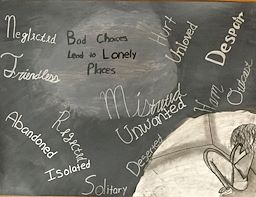 Neglected
Friendless
Bad Choices
Lead to Lonely
Places
Hurt
Unloved
Despair
Outcast
Harm
Unwanted
Abandoned
Rejected
Isolated
Deserted
Solitary